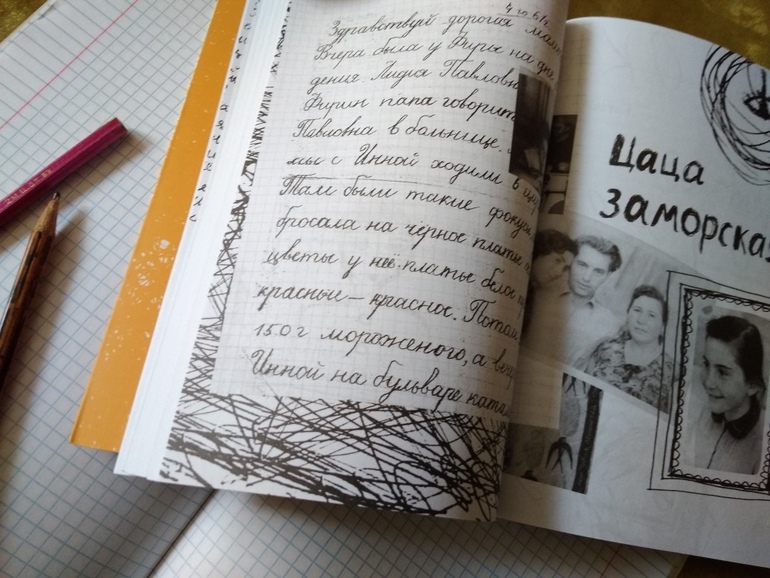 Здравствуй дорогая мама
Вчера была у Фиры на дне
дения Лидия Павловна
Фирин папа говорит
Павловна в больнице.
мы с Инной ходили в цирк
Там были такие фокусы
бросала на чёрное платье
цветы у неё платье белое
красные – красное. Потом
150 г мороженого, а вечером
Инной на бульваре
Цаца
заморская